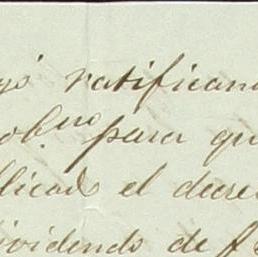 yó ratifican
ob.no para qu
licad el decre
ividendo de f